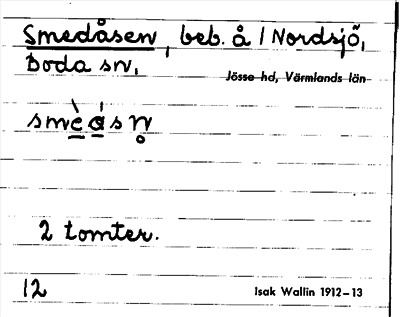 Smedåsen, beb. å 1 Nordsjö,
Boda sn,
Jösse hd, Värmlands län
smèásn̥
2 tomter.
12
Isak Wallin 1912–13